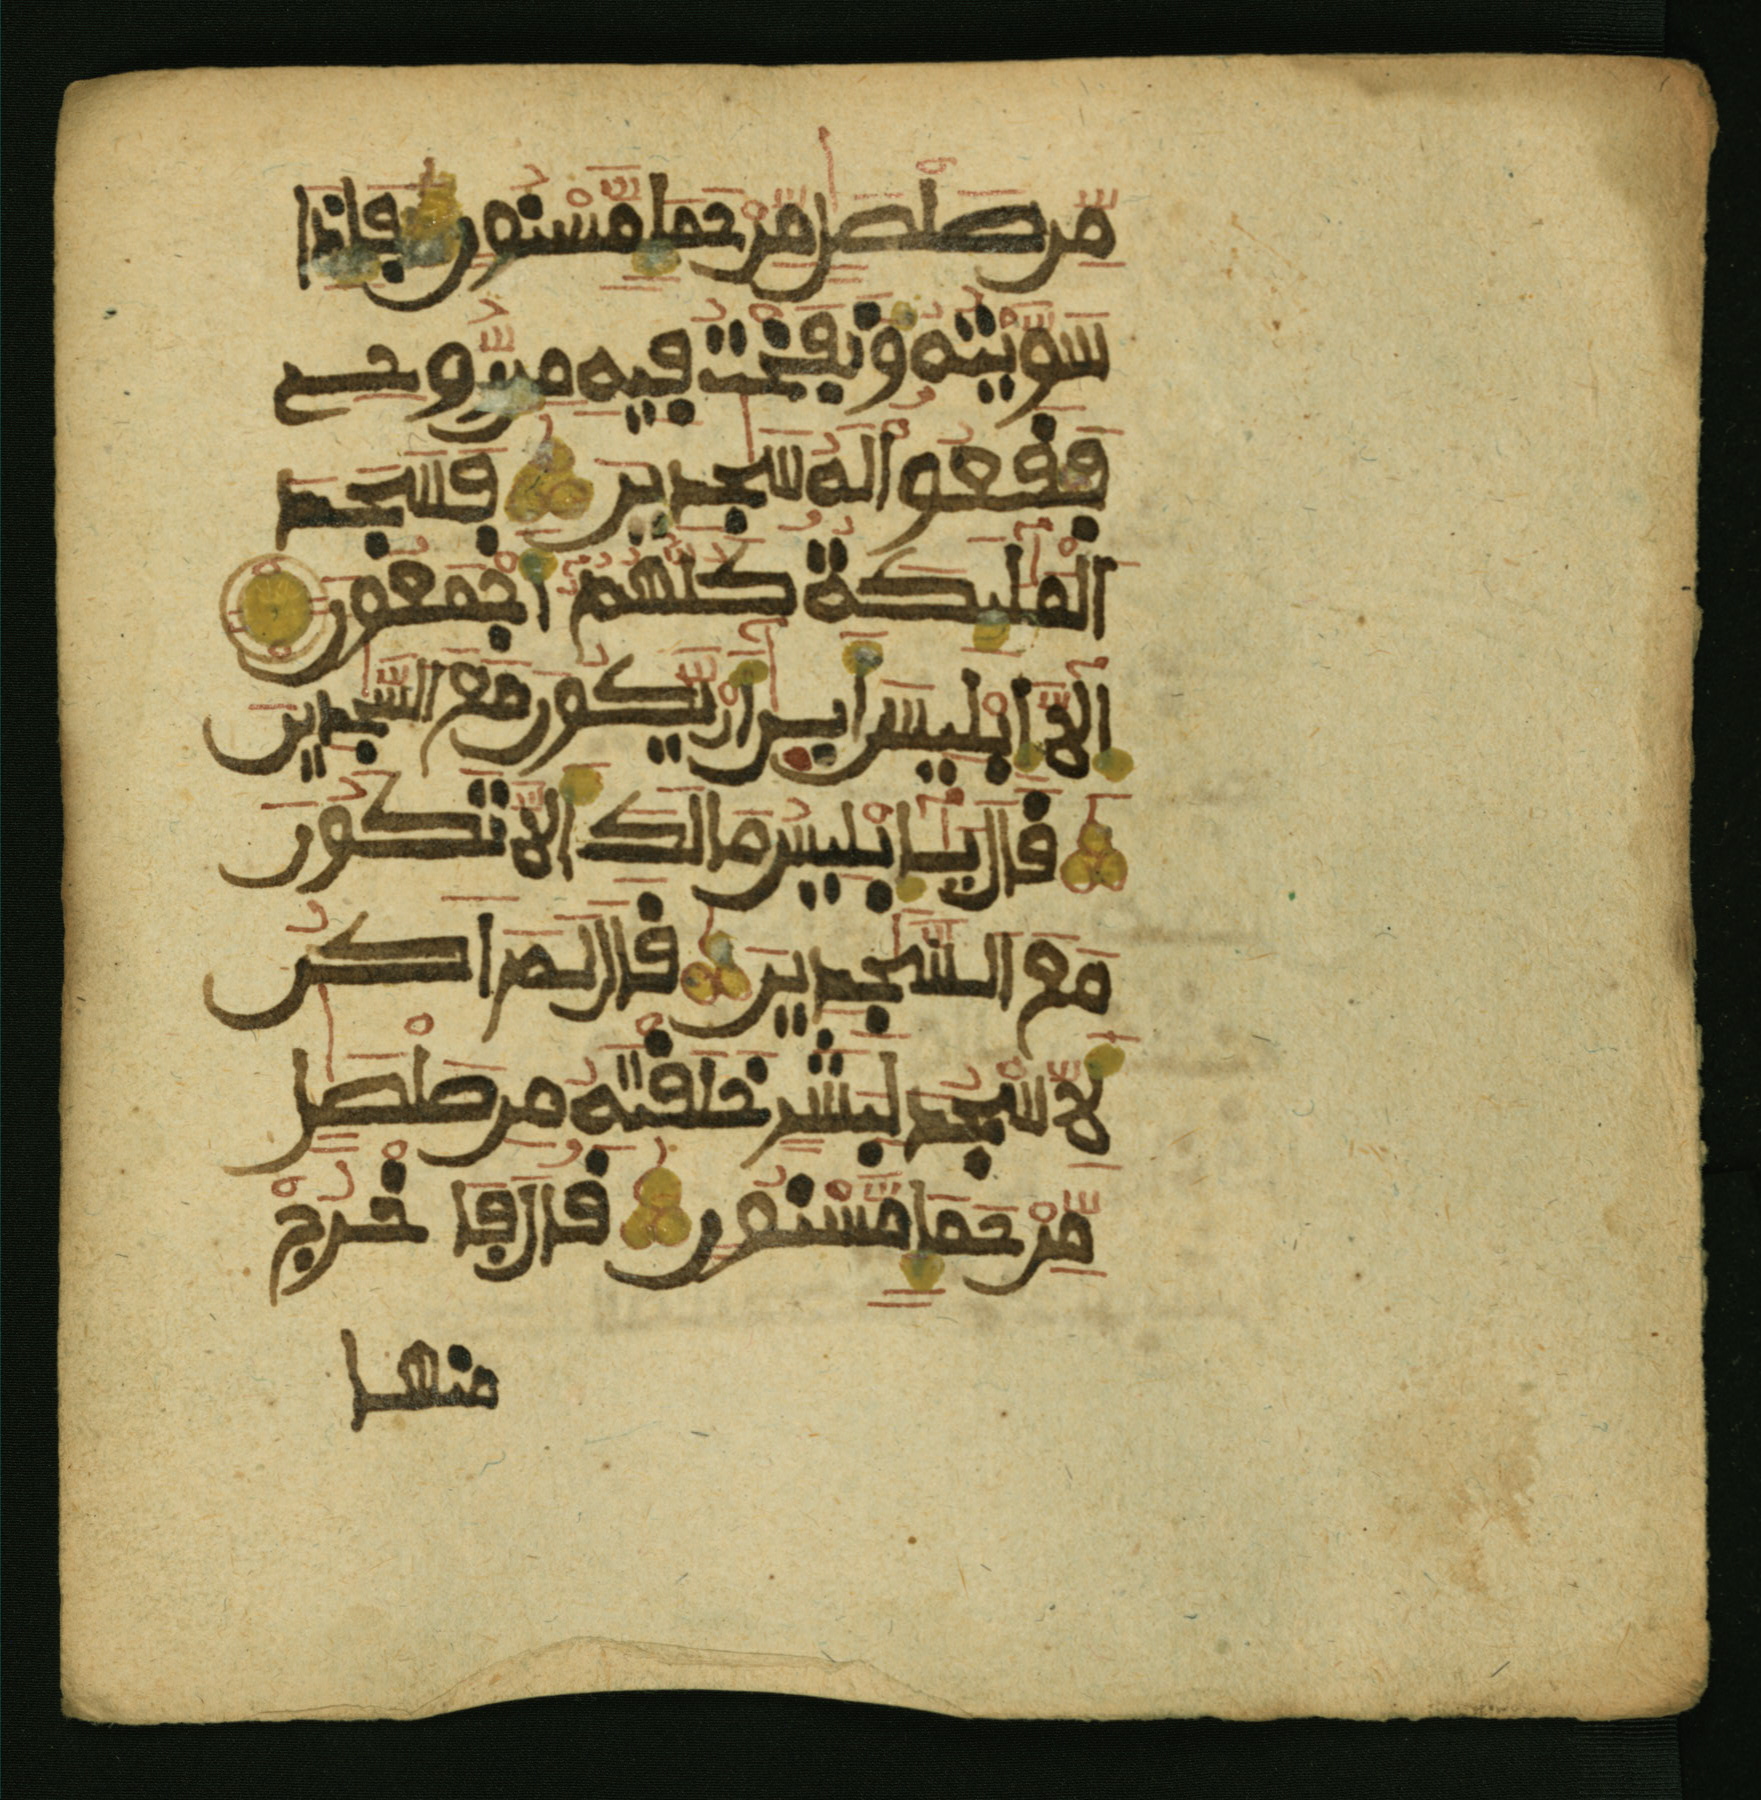 مِّن صَلْصَٰلٍ مِّنْ حَمَإٍ مَّسْنُونٍ فَإِذَا
سَوَّيْتُهُ وَنَفَخْتُ فِيهِ مِن رُّوحِے
فَقَعُوا لَهُ سَٰجِدِينَ فَسَجَدَ
الْمَلَٰٓئِكَةُ كُلُّهُمُ أَجْمَعُونَ
إِلَّآ إِبْلِيسَ أَبَىٰٓ أَن يَّكُونَ مَعَ السَّٰجِدِينَ
قَالَ يَٰٓإِبْلِيسُ مَا لَكَ أَلَّا تَكُونَ
مَعَ السَّٰجِدِينَ قَالَ لَمَ اَكُن
لِّأَسْجُدَ لِبَشَرٍ خَلَقْتَهُ مِن صَلْصَٰلٍ
مِّنْ حَمَإٍ مَّسْنُونٍ قَالَ فَاخْرُجْ
منها